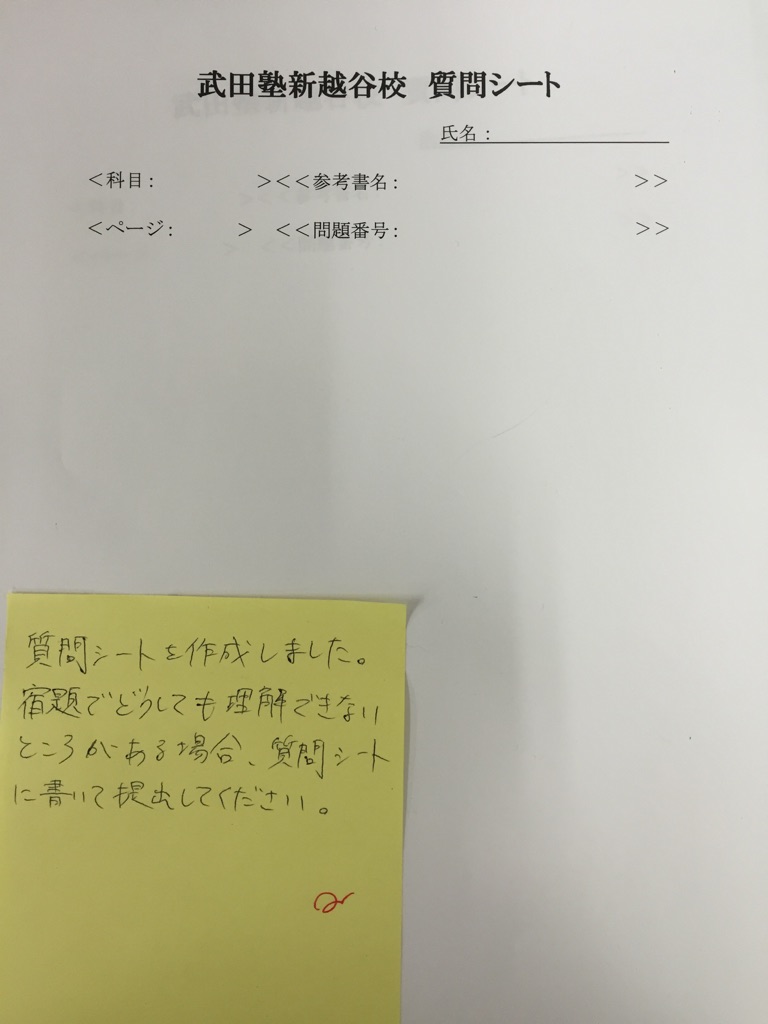 武田塾新越谷校 質問シート
氏名:
<科目: ><<参考書名: >>
<ページ: > <<問題番号: >>
質問シートを作成しました。
宿題でどうしても理解できない
ところがある場合、質問シート
に書いて提出してください。